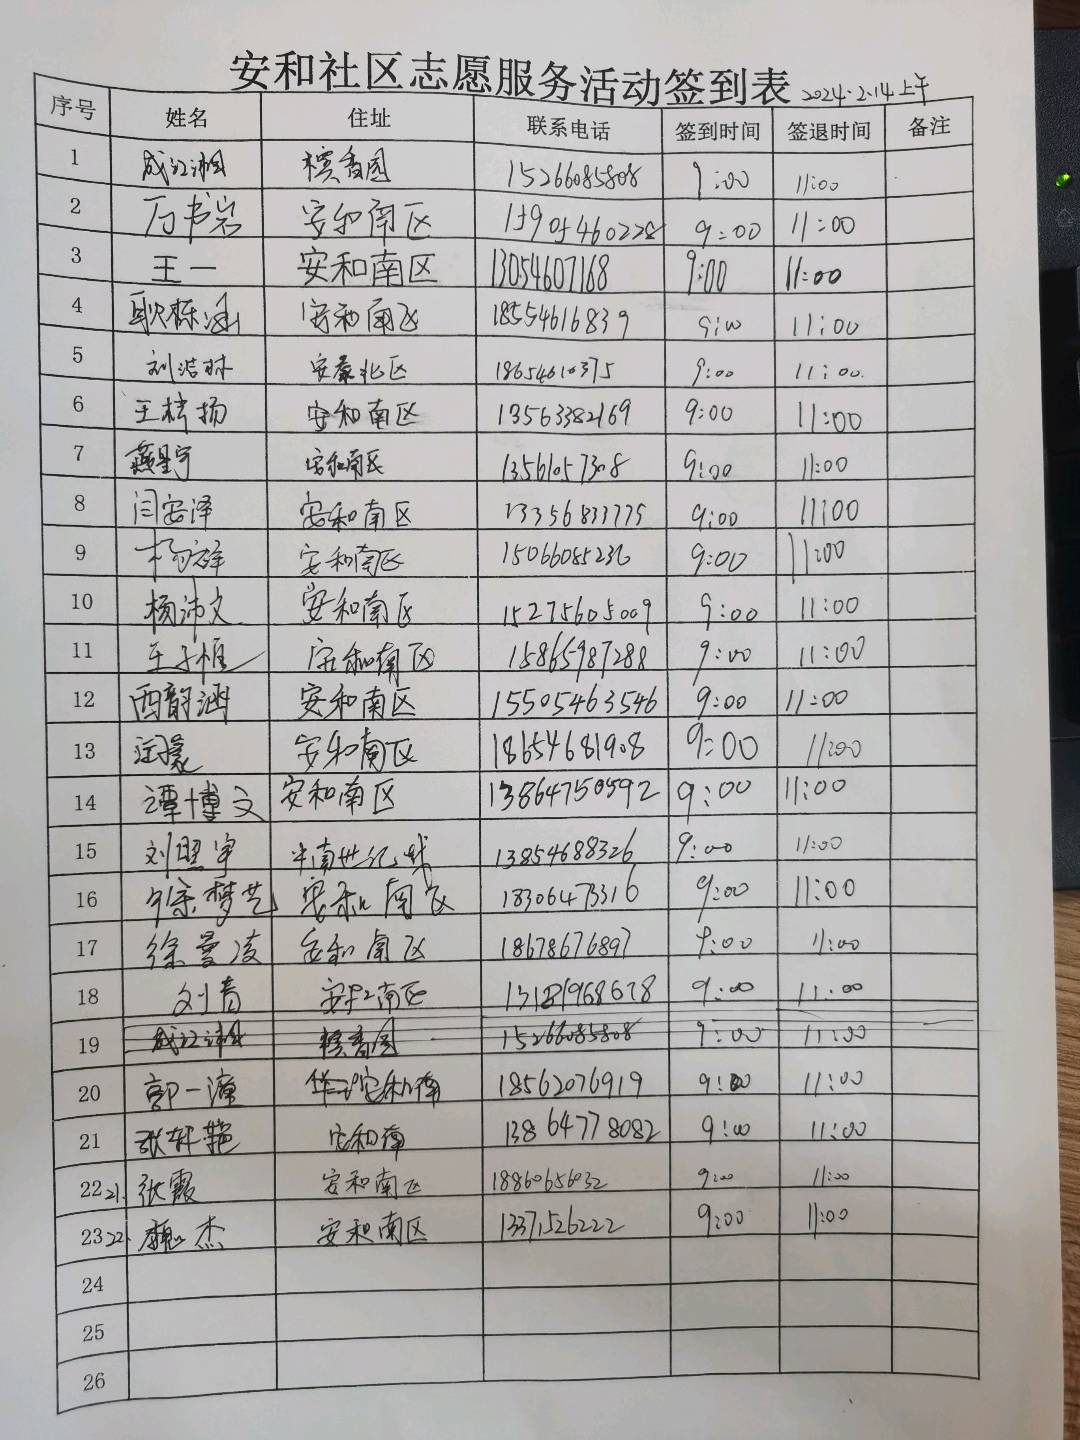 安和社区志愿服务活动签到表 2024.2.14上午
序号 姓名 住址 联系电话 签到时间 签退时间 备注
1 成江湘 槟香园 15266085808 9:00 11:00
2 万书岩 安和南区 15905460228 9:00 11:00
3 王一 安和南区 13054607168 9:00 11:00
4 耿栎涵 安和南区 18554616839 9:00 11:00
5 刘浩林 安泰北区 18654610375 9:00 11:00
6 王梓扬 安和南区 13563382169 9:00 11:00
7 燕星宇 安和南区 13561057308 9:00 11:00
8 闫安泽 安和南区 13356833775 9:00 11:00
9 安和南区 15066085236 9:00 11:00
10 杨沛文 安和南区 15275605009 9:00 11:00
11 王子恒 安和南区 15865987288 9:00 11:00
12 西韵涵 安和南区 15505463546 9:00 11:00
13 安和南区 18654681908 9:00 11:00
14 谭博文 安和南区 13864750592 9:00 11:00
15 刘照宇 13854688326 9:00 11:00
16 徐梦艺 安和南区 18306473316 9:00 11:00
17 徐曼凌 安和南区 18678676897 9:00 11:00
18 刘青 安和南区 13181968678 9:00 11:00
19 成江湘 槟香园 15266085808 9:00 11:00
20 郭一潼 安和南 18562076919 9:00 11:00
21 张轩艳 安和南 13864778082 9:00 11:00
22 21. 张霞 安和南区 18860656032 9:00 11:00
23 22. 魏杰 安和南区 13371526222 9:00 11:00
24
25
26